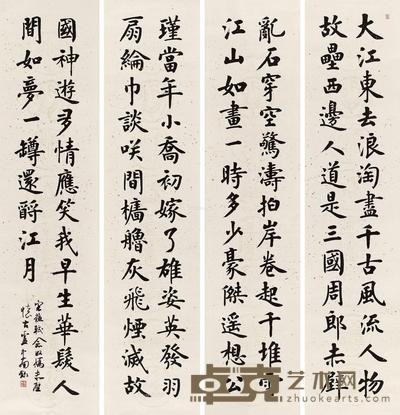 大江東去浪淘盡千古風流人物
故壘西邊人道是三國周郎赤壁
亂石穿空驚濤拍岸卷起千堆雪
江山如畫一時多少豪傑遥想公
瑾當年小喬初嫁了雄姿英發羽
扇綸巾談咲間檣艣灰飛煙滅故
國神遊多情應笑我早生華髮人
間如夢一罇還酹江月
念奴嬌赤壁
懷古盧中南
卓克艺术网